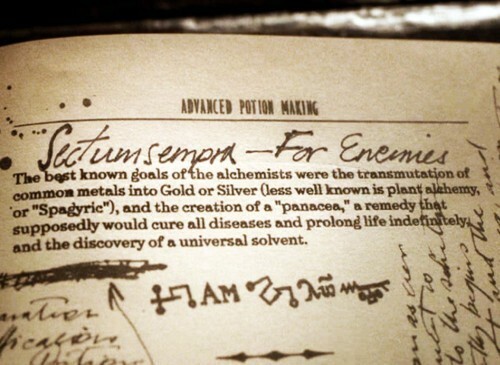 ADVANCED POTION MAKING
Sectumsempra — For Enemies
The best known goals of the alchemists were the transmutation of
common metals into Gold or Silver (less well known is plant alchemy,
or "Spagyric"), and the creation of a "panacea," a remedy that
supposedly would cure all diseases and prolong life indefinitely,
and the discovery of a universal solvent.
AM